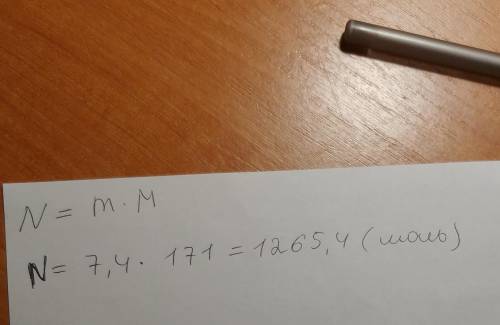 N = m · M
N = 7,4 · 171 = 1265,4 (моль)